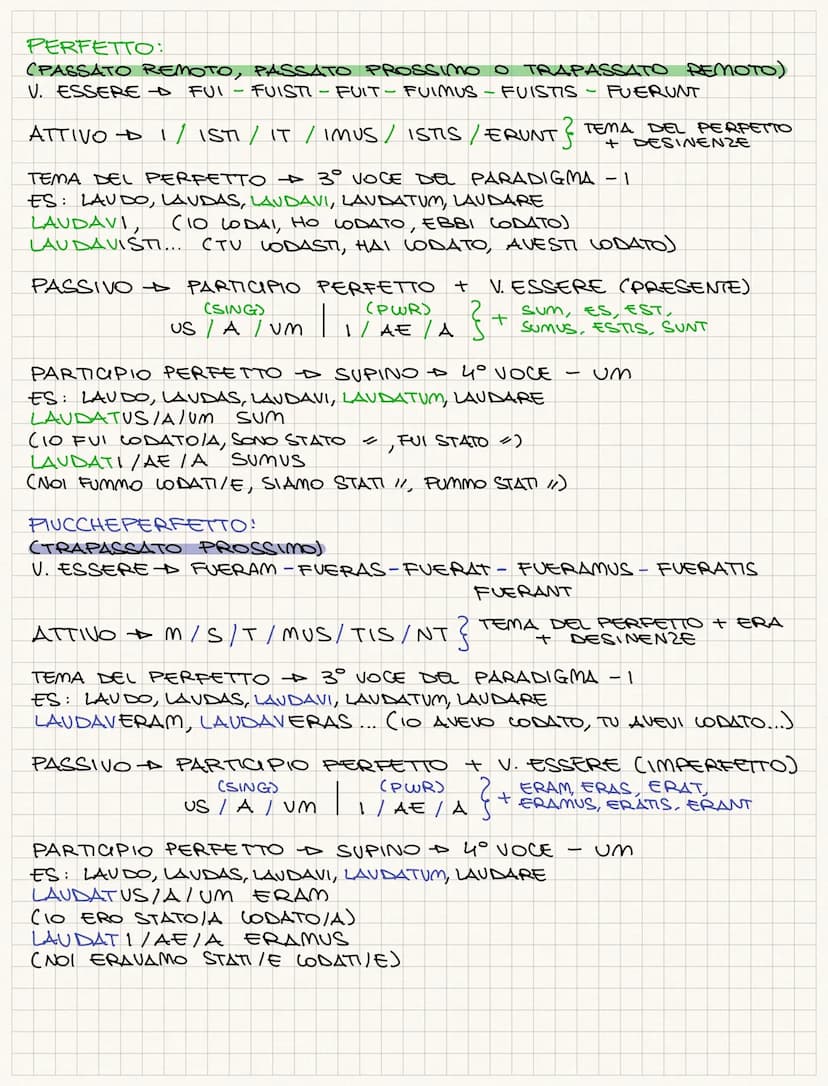 PERFETTO:
(PASSATO REMOTO, PASSATO PROSSIMO O TRAPASSATO REMOTO)
V. ESSERE → FUI - FUISTI - FUIT - FUIMUS - FUISTIS - FUERUNT
ATTIVO → I / ISTI / IT / IMUS / ISTIS / ERUNT } TEMA DEL PERFETTO + DESINENZE
TEMA DEL PERFETTO → 3° VOCE DEL PARADIGMA - I
ES: LAUDO, LAUDAS, LAUDAVI, LAUDATUM, LAUDARE
LAUDAVI, (IO LODAI, HO LODATO, EBBI LODATO)
LAUDAVISTI... (TU LODASTI, HAI LODATO, AVESTI LODATO)
PASSIVO → PARTICIPIO PERFETTO + V. ESSERE (PRESENTE)
(SING) (PLUR) } + SUM, ES, EST,
US / A / UM | I / AE / A SUMUS, ESTIS, SUNT
PARTICIPIO PERFETTO → SUPINO → 4° VOCE - UM
ES: LAUDO, LAUDAS, LAUDAVI, LAUDATUM, LAUDARE
LAUDATUS/A/UM SUM
(IO FUI LODATO/A, SONO STATO =, FUI STATO =)
LAUDATI/AE/A SUMUS
(NOI FUMMO LODATI/E, SIAMO STATI //, FUMMO STATI //)
PIUCCHEPERFETTO:
(TRAPASSATO PROSSIMO)
V. ESSERE → FUERAM - FUERAS - FUERAT - FUERAMUS - FUERATIS
FUERANT
ATTIVO → M / S / T / MUS / TIS / NT } TEMA DEL PERFETTO + ERA + DESINENZE
TEMA DEL PERFETTO → 3° VOCE DEL PARADIGMA - I
ES: LAUDO, LAUDAS, LAUDAVI, LAUDATUM, LAUDARE
LAUDAVERAM, LAUDAVERAS... (IO AVEVO LODATO, TU AVEVI LODATO...)
PASSIVO → PARTICIPIO PERFETTO + V. ESSERE (IMPERFETTO)
(SING) (PLUR) } + ERAM, ERAS, ERAT,
US / A / UM | I / AE / A ERAMUS, ERATIS, ERANT
PARTICIPIO PERFETTO → SUPINO → 4° VOCE - UM
ES: LAUDO, LAUDAS, LAUDAVI, LAUDATUM, LAUDARE
LAUDATUS/A/UM ERAM
(IO ERO STATO/A LODATO/A)
LAUDATI/AE/A ERAMUS
(NOI ERAVAMO STATI/E LODATI/E)